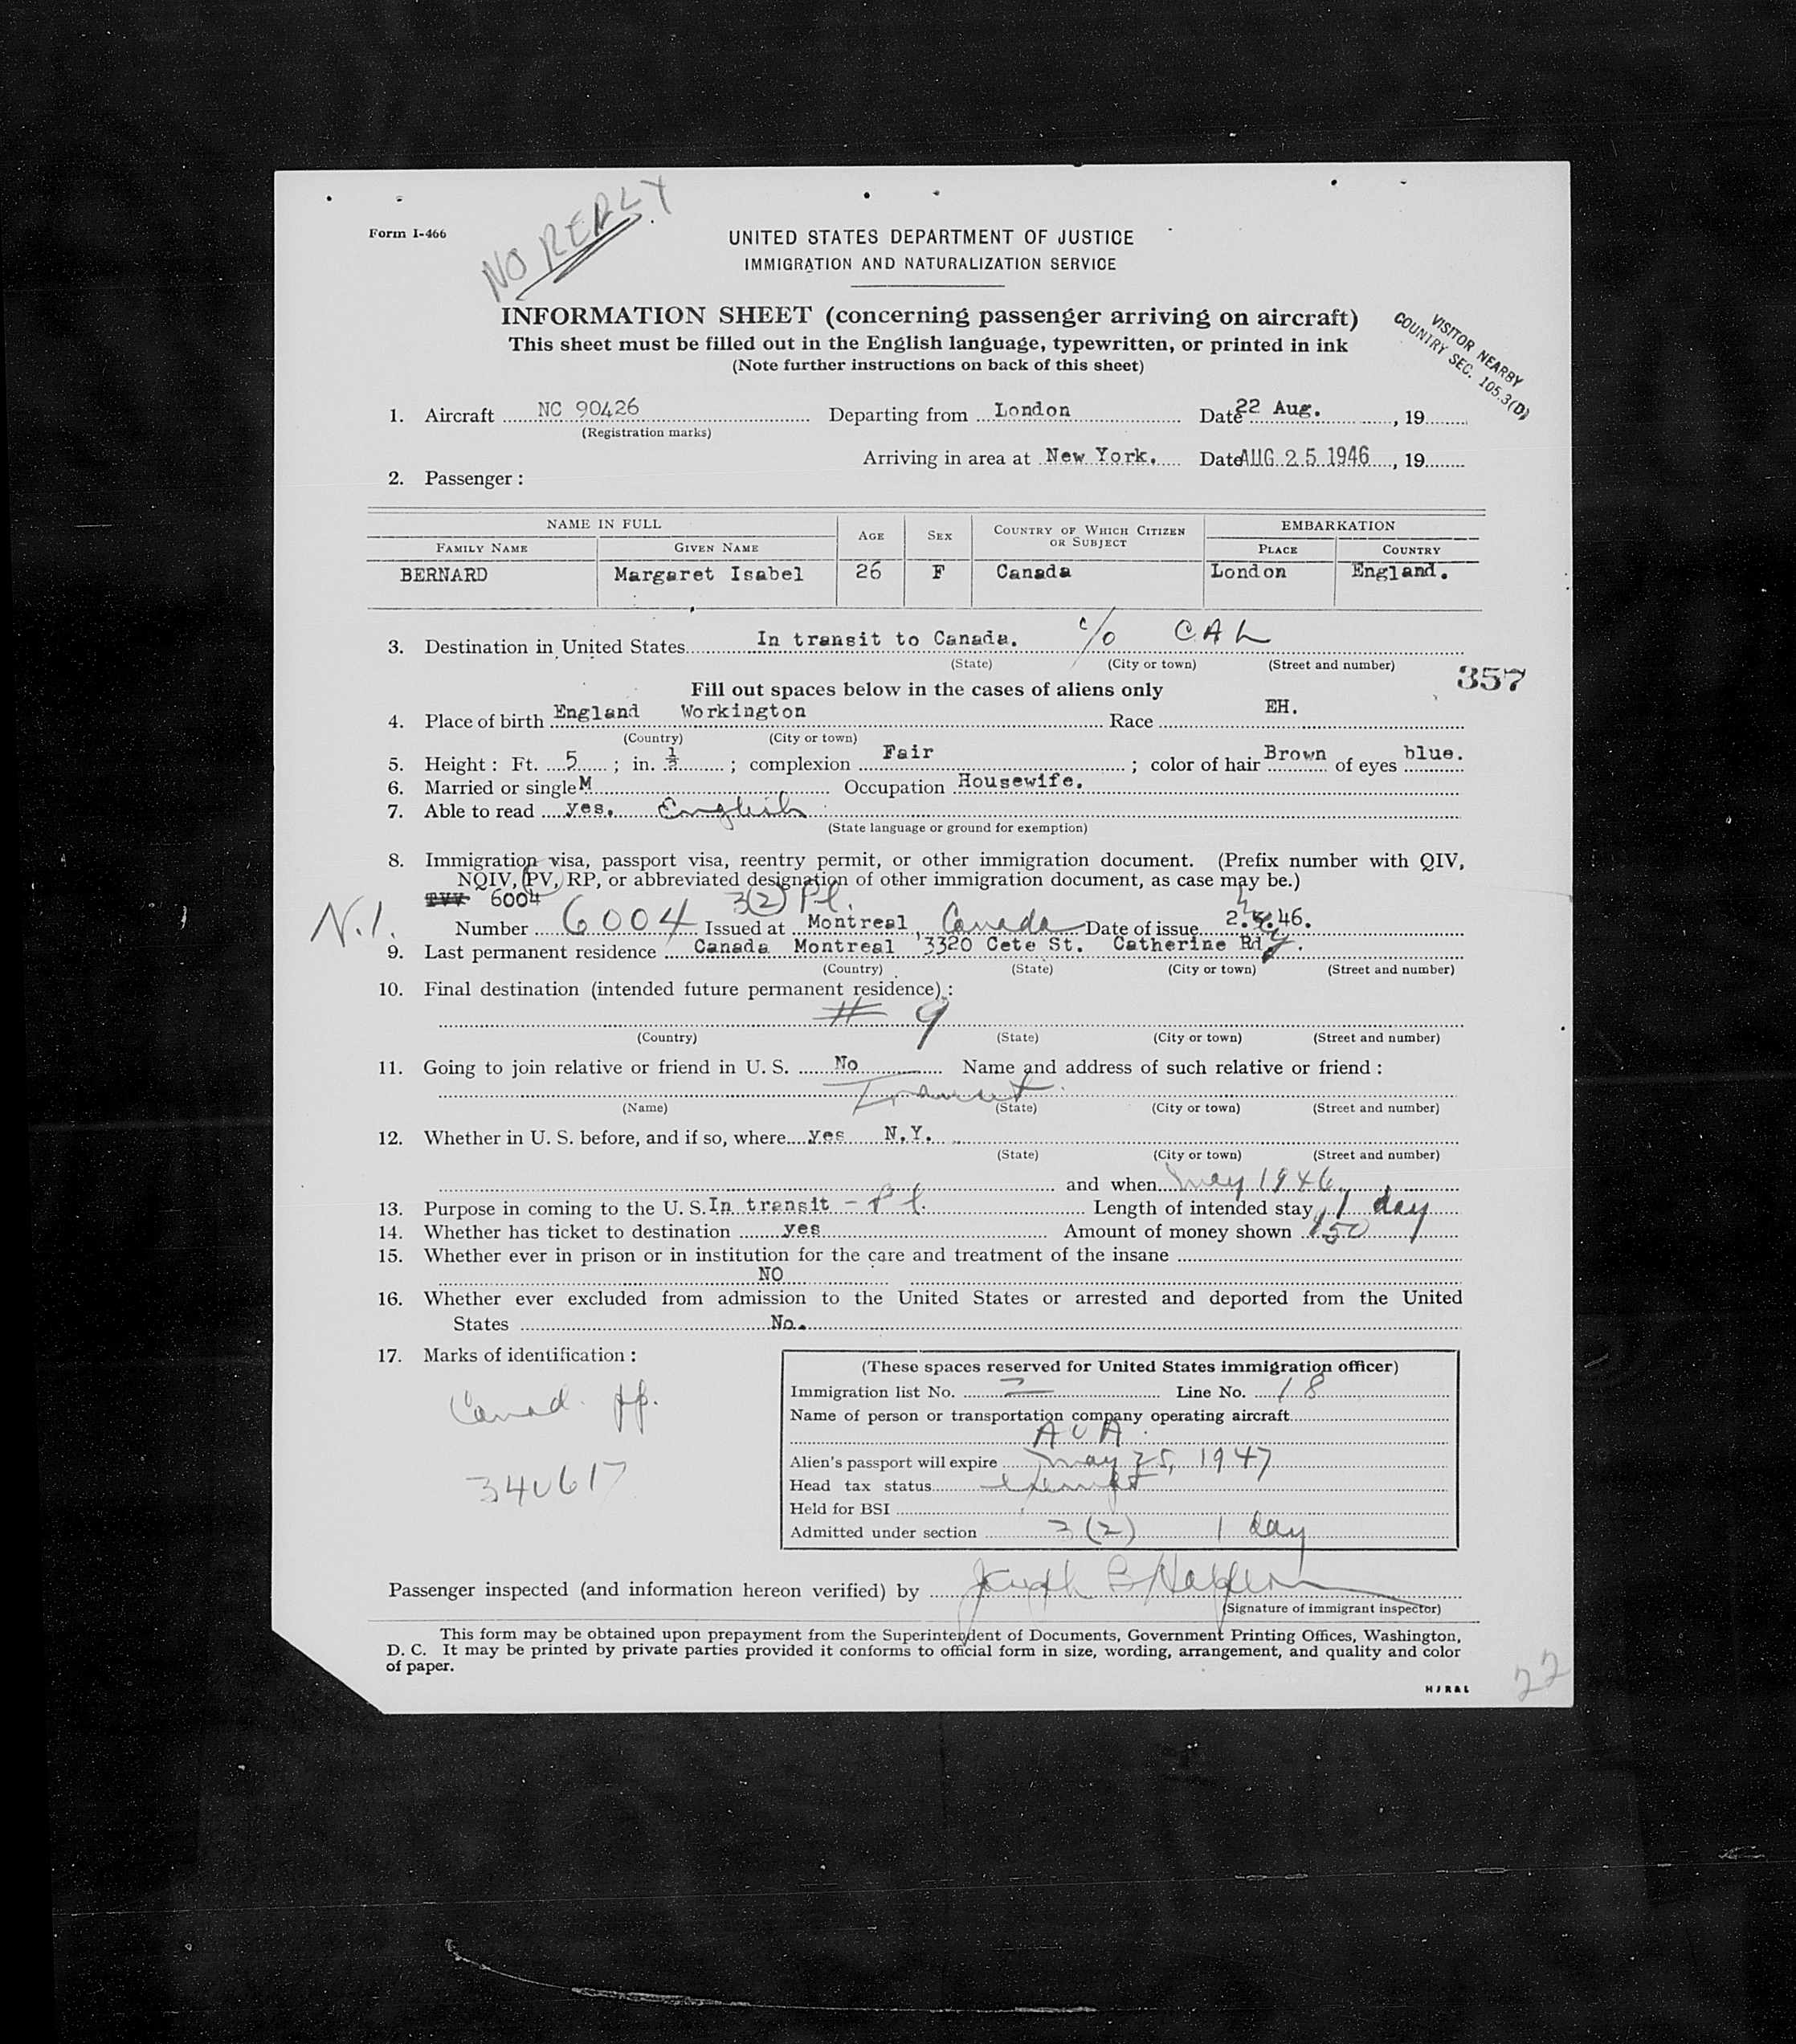 NO REPLY
Form I-466
UNITED STATES DEPARTMENT OF JUSTICE
IMMIGRATION AND NATURALIZATION SERVICE
INFORMATION SHEET (concerning passenger arriving on aircraft)
This sheet must be filled out in the English language, typewritten, or printed in ink
(Note further instructions on back of this sheet)
VISITOR NEARBY
COUNTRY SEC. 105.3(D)
1. Aircraft NC 90426 Departing from London Date 22 Aug., 19
(Registration marks)
Arriving in area at New York. Date AUG 25 1946, 19
2. Passenger:
NAME IN FULL AGE SEX COUNTRY OF WHICH CITIZEN OR SUBJECT EMBARKATION
FAMILY NAME GIVEN NAME PLACE COUNTRY
BERNARD Margaret Isabel 26 F Canada London England.
3. Destination in United States In transit to Canada. c/o CAL
(State) (City or town) (Street and number)
357
Fill out spaces below in the cases of aliens only
4. Place of birth England Workington Race EH.
(Country) (City or town)
5. Height: Ft. 5; in. ½; complexion Fair; color of hair Brown of eyes blue.
6. Married or single M Occupation Housewife.
7. Able to read yes. English
(State language or ground for exemption)
8. Immigration visa, passport visa, reentry permit, or other immigration document. (Prefix number with QIV,
NQIV, PV, RP, or abbreviated designation of other immigration document, as case may be.)
6004 3(2) Pl.
N.I. Number 6004 Issued at Montreal, Canada Date of issue 2. 46.
9. Last permanent residence Canada Montreal 3320 Cete St. Catherine Rd.
(Country) (State) (City or town) (Street and number)
10. Final destination (intended future permanent residence):
# 9
(Country) (State) (City or town) (Street and number)
11. Going to join relative or friend in U. S. No Name and address of such relative or friend:
Transit
(Name) (State) (City or town) (Street and number)
12. Whether in U. S. before, and if so, where yes N.Y.
(State) (City or town) (Street and number)
and when May 1946
13. Purpose in coming to the U. S. In transit - Pl. Length of intended stay 1 day
14. Whether has ticket to destination yes Amount of money shown $50
15. Whether ever in prison or in institution for the care and treatment of the insane
NO
16. Whether ever excluded from admission to the United States or arrested and deported from the United
States No.
17. Marks of identification:
Canad. pp.
340617
(These spaces reserved for United States immigration officer)
Immigration list No. 2 Line No. 18
Name of person or transportation company operating aircraft
AOA
Alien's passport will expire May 25, 1947
Head tax status exempt
Held for BSI
Admitted under section 3(2) 1 day
Passenger inspected (and information hereon verified) by Joseph B Halpern
(Signature of immigrant inspector)
This form may be obtained upon prepayment from the Superintendent of Documents, Government Printing Offices, Washington,
D. C. It may be printed by private parties provided it conforms to official form in size, wording, arrangement, and quality and color
of paper.
HJR&L
22